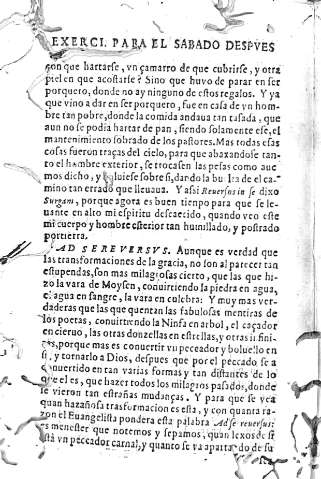 EXERCI. PARA EL SABADO DESPVES
con que hartarse, vn çamarro de que cubrirse, y otra
piel en que acostarse? Sino que huvo de parar en ser
porquero, donde no ay ninguno de estos regalos. Y ya
que vino a dar en ser porquero, fue en casa de vn hom-
bre tan pobre, donde la comida andaua tan tassada, que
aun no se podia hartar de pan, siendo solamente ese, el
mantenimiento sobrado de los pastores. Mas todas esas
cosas fueron traças del cielo, para que abaxandose tan-
to el hombre exterior, se trocasen las pesas como aue
mos dicho, y boluiese sobre si, dardo la buelta de el ca-
mino tan errado que lleuaua. Y assi Reuersus in se dixo
Surgam, porque agora es buen tiempo para que se le-
uante en alto mi espiritu descaecido, quando veo este
mi cuerpo y hombre esterior tan humillado, y postrado
por tierra.
AD SE REVERSVS. Aunque es verdad que
las transformaciones de la gracia, no son al parecer tan
estupendas, son mas milagrosas cierto, que las que hi-
zo la vara de Moysen, conuirtiendo la piedra en agua,
el agua en sangre, la vara en culebra: Y muy mas ver-
daderas que las que quentan las fabulosas mentiras de
los poetas, conuirtiendo la Ninfa en arbol, el caçador
en cieruo, las otras donzellas en estrellas, y otras infini-
tas, porque mas es conuertir vn peccador y boluello en
si, y tornarlo a Dios, despues que por el peccado se a
conuertido en tan varias formas y tan distantes de lo
que el es, que hazer todos los milagros pasados, donde
se vieron tan estrañas mudanças. Y para que se vea
quan hazañosa trasformacion es esta, y con quanta ra-
zon el Euangelista pondera esta palabra Ad se reuersus:
es menester que notemos y sepamos, quan lexos de si
està vn peccador carnal, y quanto se va apartando de su